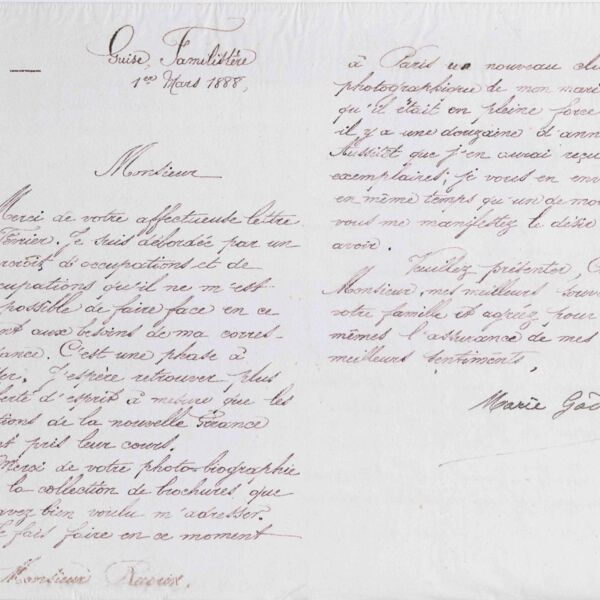 Guise, Familistère
1er Mars 1888,
Monsieur
Merci de votre affectueuse lettre
Février. Je suis débordée par un
d'occupations et de
cupations qu'il ne m'est
possible de faire face en ce
ent aux besoins de ma corres-
dance. C'est une phase à
er. J'espère retrouver plus
berté d'esprit à mesure que les
tions de la nouvelle Gérance
nt pris leur cours.
Merci de votre photo-biographie
la collection de brochures que
avez bien voulu m'adresser.
Je fais faire en ce moment
Monsieur
à Paris un nouveau cli
photographique de mon mari
qu'il était en pleine force
il y a une douzaine d'ann
Aussitôt que j'en aurai reçu
exemplaires, je vous en env
en même temps qu'un de mo
vous me manifestez le désir
avoir.
Veuillez présenter, C
Monsieur, mes meilleurs souv
votre famille et agréez pour
mêmes l'assurance de mes
meilleurs sentiments,
Marie God